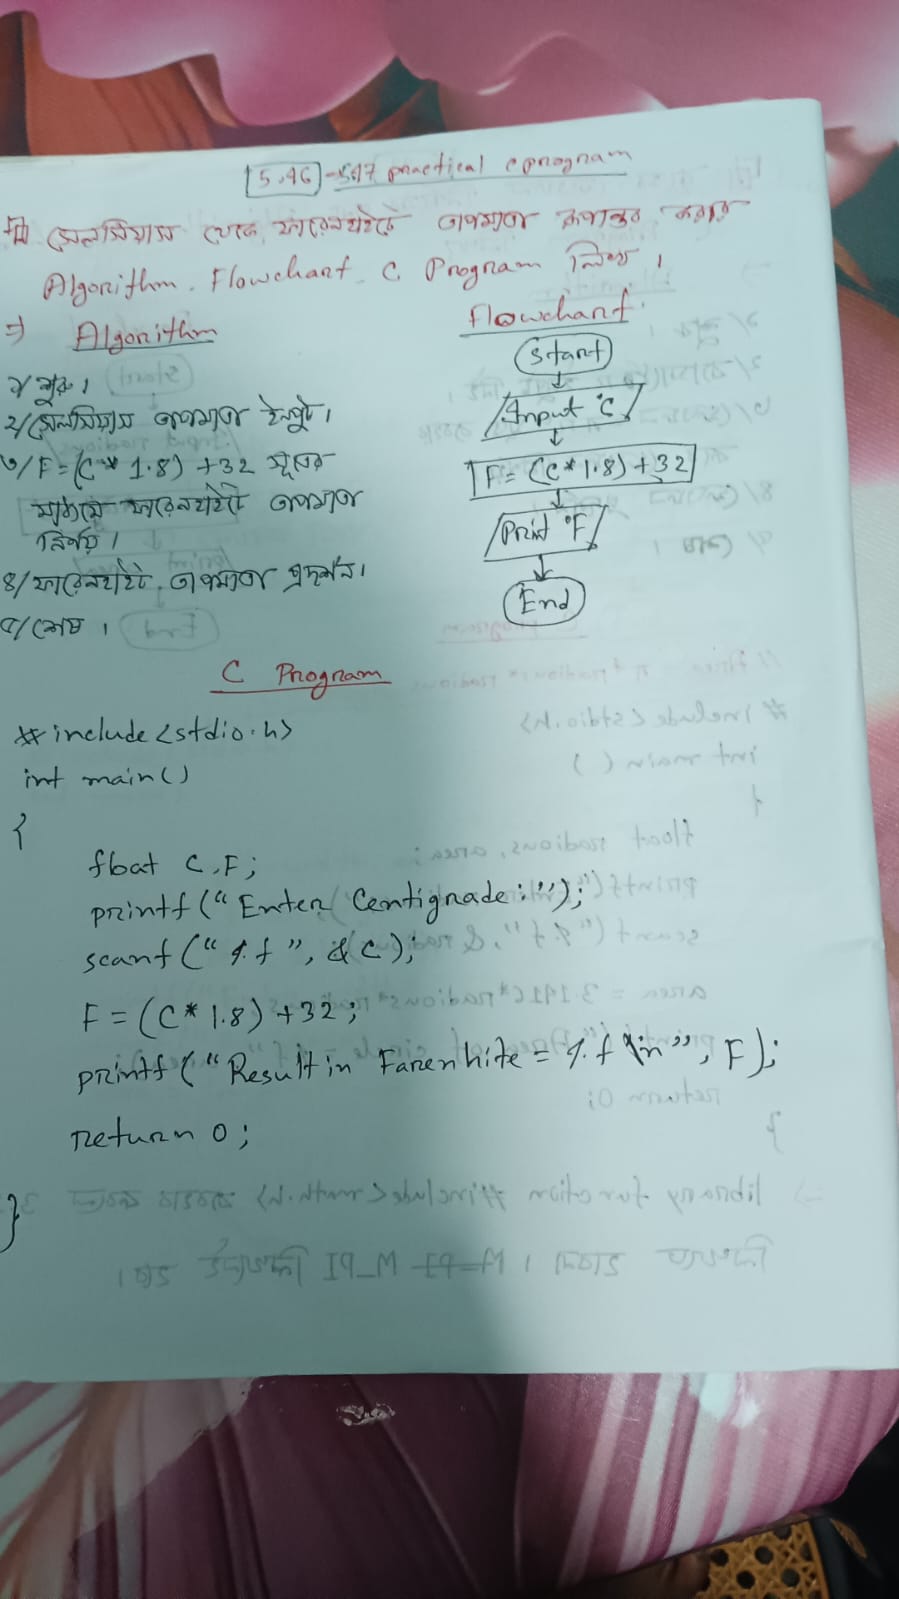 5.46-5.47 practical c program
সেলসিয়াস থেকে ফারেনহাইটে তাপমাত্রা রূপান্তর করার
Algorithm. Flowchart. C Program লিখ।
⇒ Algorithm
১/ শুরু।
২/ সেলসিয়াস তাপমাত্রা ইনপুট।
৩/ F=(C* 1.8) +32 সূত্রের
মাধ্যমে ফারেনহাইটে তাপমাত্রা
নির্ণয়।
৪/ ফারেনহাইট তাপমাত্রা প্রদর্শন।
৫/ শেষ।
Flowchart
Start
Input °C
F=(C*1.8)+32
Print °F
End
C Program
#include<stdio.h>
int main()
{
float C,F;
printf("Enter Centigrade:");
scanf("%f", &C);
F=(C*1.8)+32;
printf("Result in Farenhite = %f \n", F);
return 0;
}